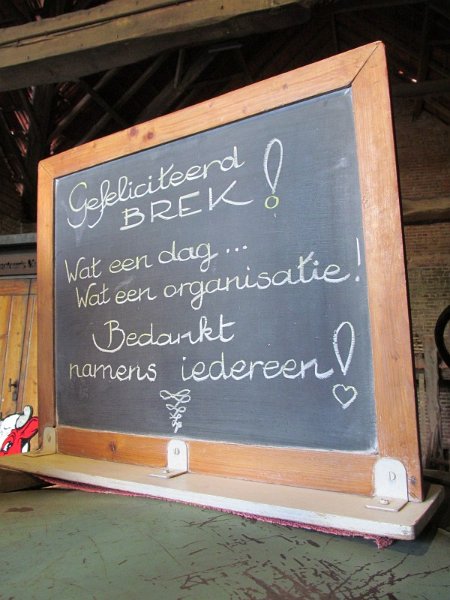 Gefeliciteerd
BREK!
Wat een dag...
Wat een organisatie!
Bedankt
namens iedereen!